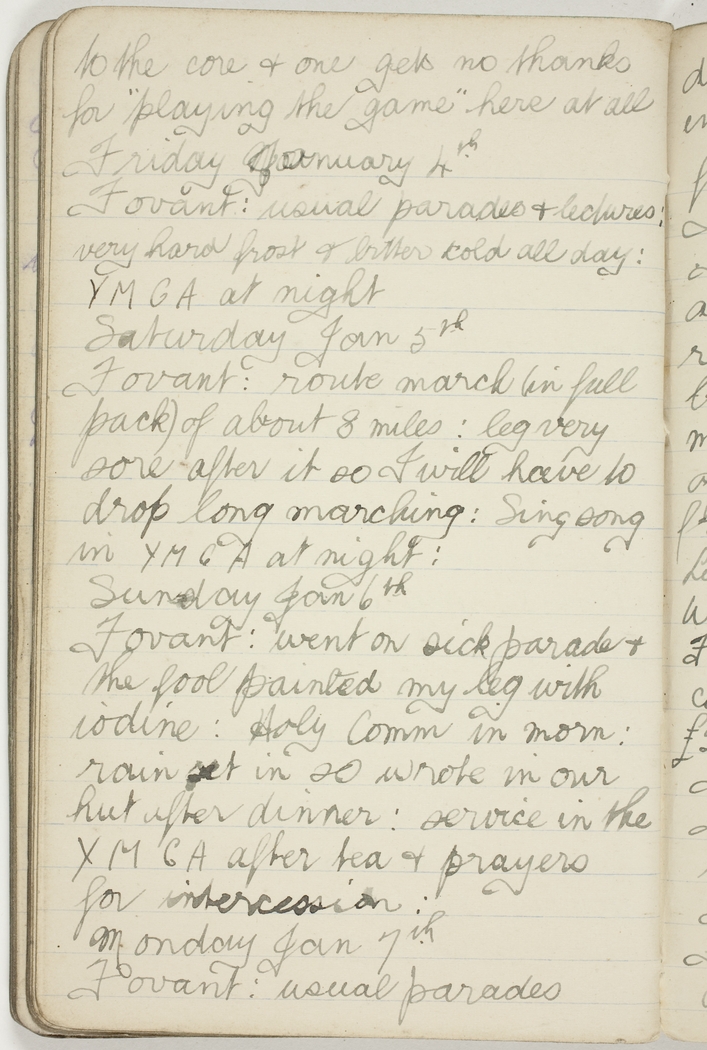 to the core & one gets no thanks
for "playing the game" here at all
Friday January 4th
Fovant: usual parades & lectures:
very hard frost & bitter cold all day:
YMCA at night
Saturday Jan 5th
Fovant: route march (in full
pack) of about 8 miles: leg very
sore after it so I will have to
drop long marching: Sing song
in YMCA at night:
Sunday Jan 6th
Fovant: went on sick parade &
the fool painted my leg with
iodine: Holy Comm in morn:
rain set in so wrote in our
hut after dinner: service in the
YMCA after tea & prayers
for intercession:
Monday Jan 7th
Fovant: usual parades